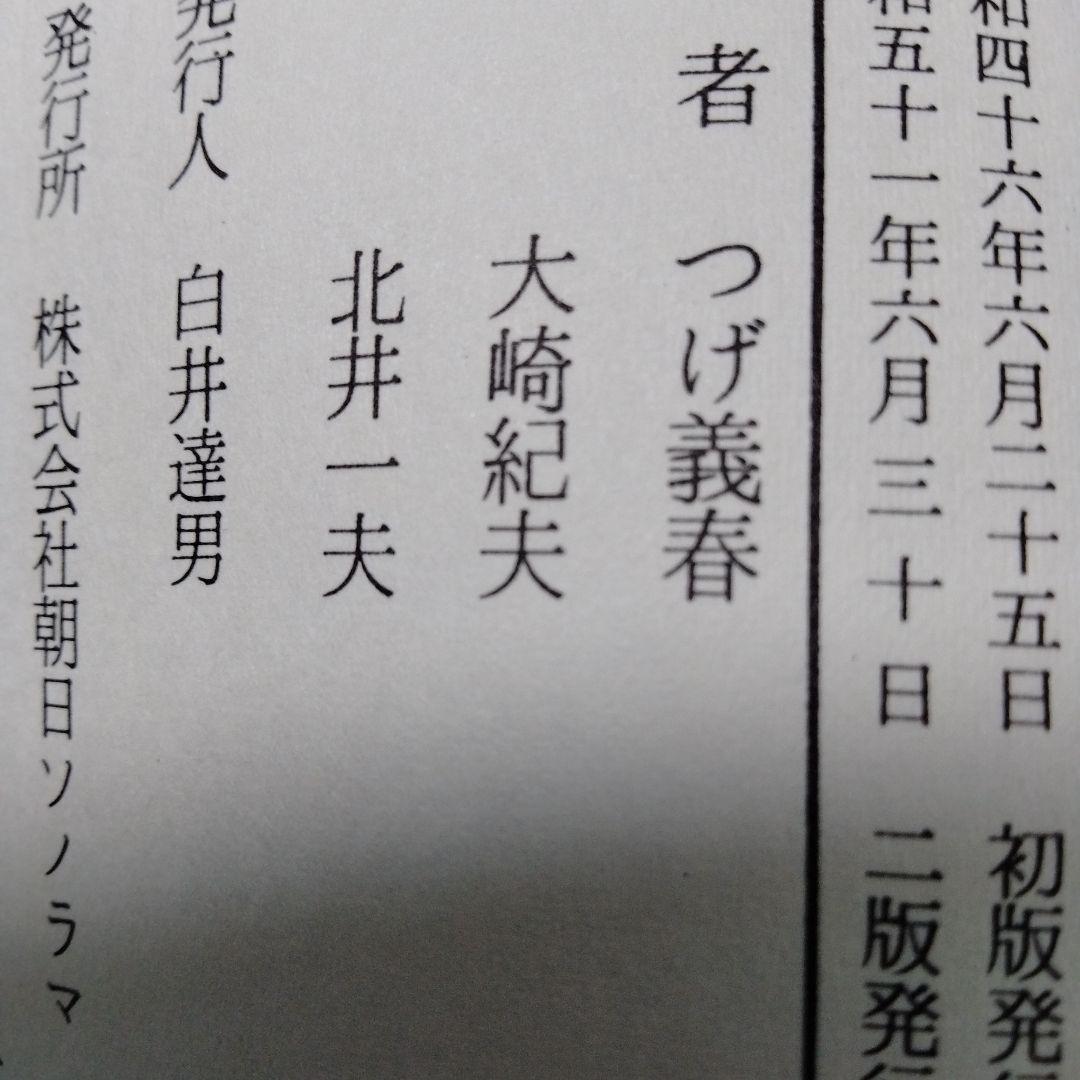 和四十六年六月二十五日 初版発行
和五十一年六月三十日 二版発行
者 つげ義春
大崎紀夫
北井一夫
発行人 白井達男
発行所 株式会社朝日ソノラマ